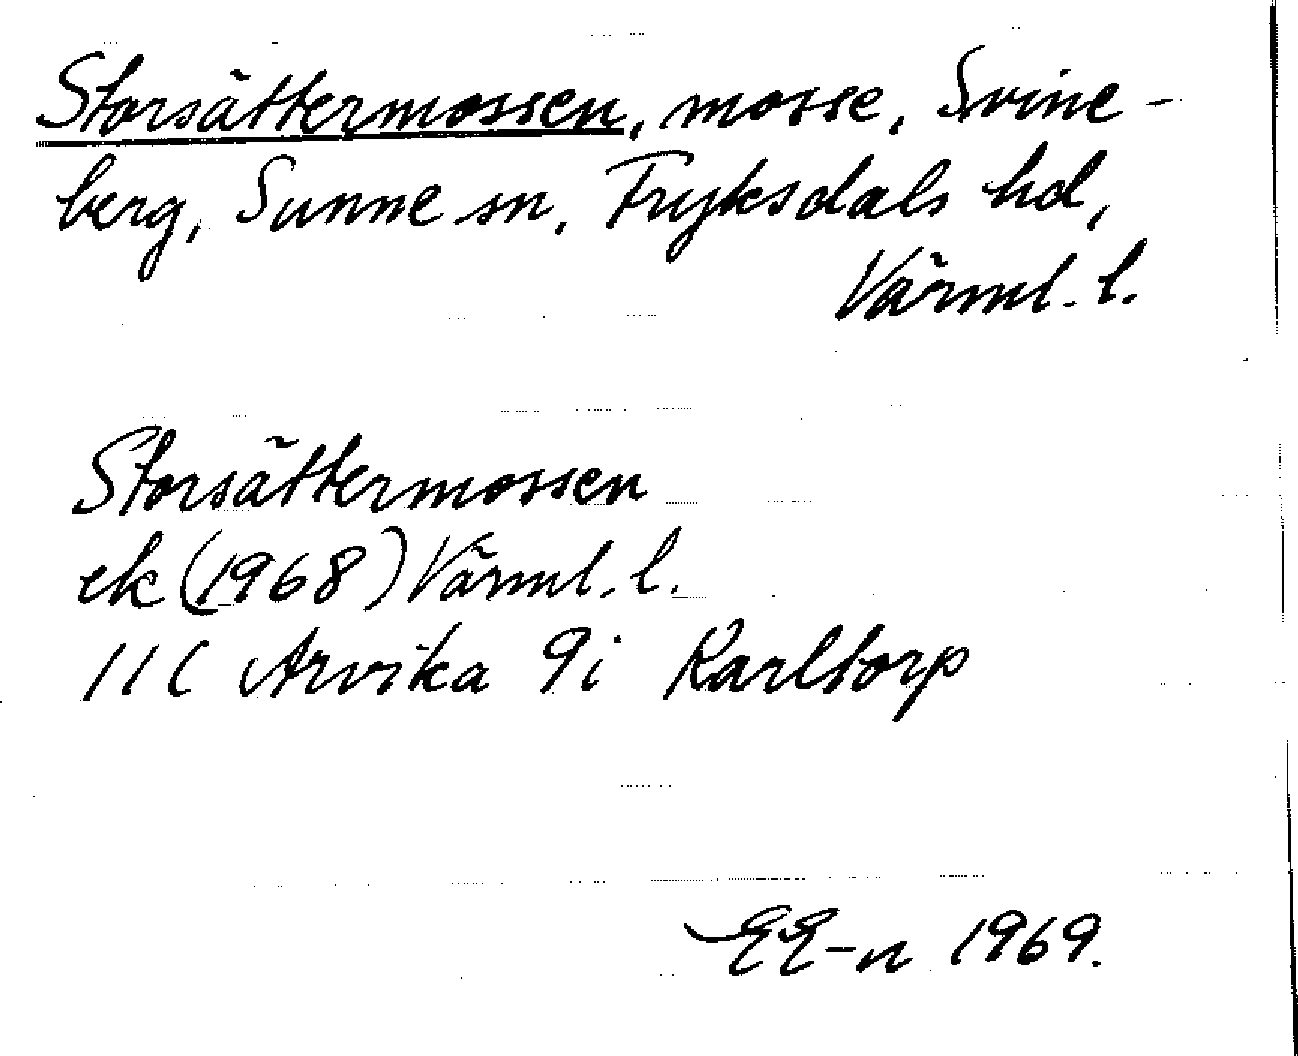 Storsättermossen, mosse, Svine-
berg, Sunne sn, Fryksdals hd,
Värml. l.
Storsättermossen
ek (1968) Värml. l.
11C Arvika 9i Karltorp
EE-n 1969.